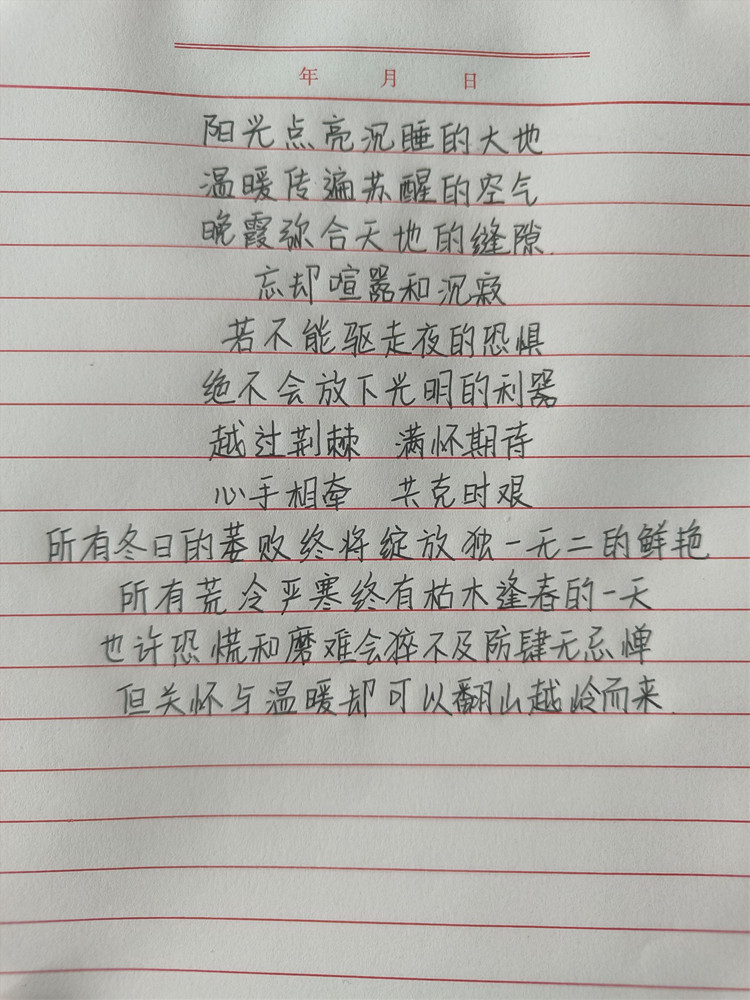 年 月 日
阳光点亮沉睡的大地
温暖传遍苏醒的空气
晚霞弥合天地的缝隙
忘却喧嚣和沉寂
若不能驱走夜的恐惧
绝不会放下光明的利器
越过荆棘 满怀期待
心手相牵 共克时艰
所有冬日的萎败终将绽放独一无二的鲜艳
所有荒冷严寒终有枯木逢春的一天
也许恐慌和磨难会猝不及防肆无忌惮
但关怀与温暖却可以翻山越岭而来